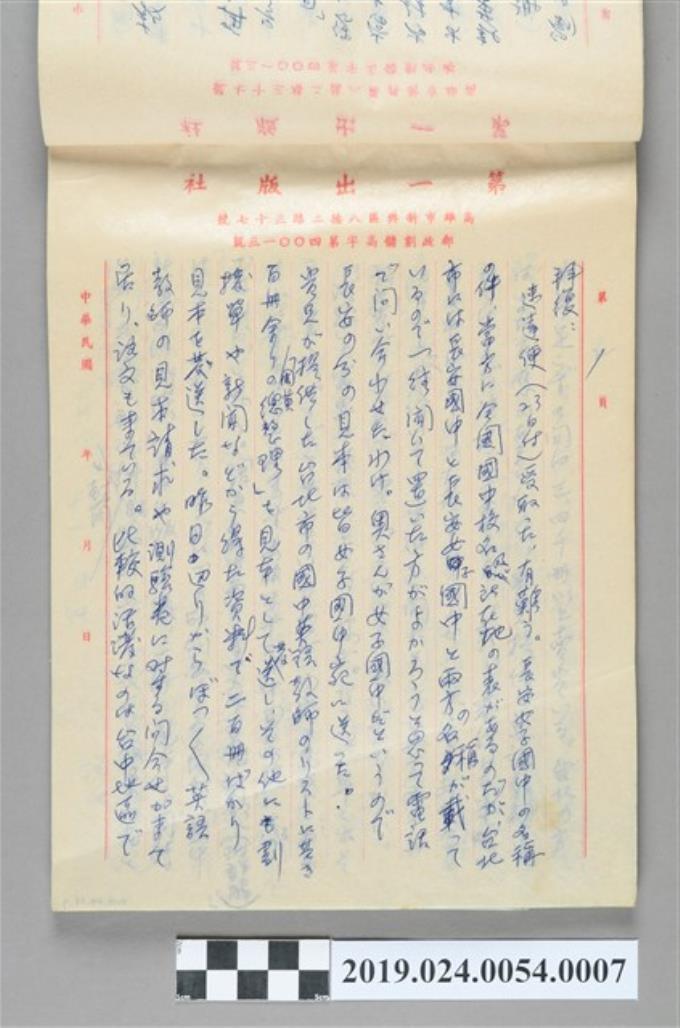 第一出版社
高雄市新興區八德二路三十七號
郵政劃儲高字第四〇〇一三號
第 1 頁
拝復：
速達便（23日付）受取った，有難う。長安女子國中の名稱
の件，当方に全國國中校名及所在地の表があるのだが，台北
市には長安國中と長安女子國中と両方の名稱が載って
いるので一往聞いて置いた方がよかろうと思って電話
で問い合わせたわけ。奥さんが女子國中だというので
長安の分の見本は皆女子國中宛に送った。
貴兄が提供した台北市の國中英語教師のリストに基き
百冊余りの「總整理」を見本として送し，その他にも劃
撥單や新聞などから得た資料で二百冊ばかり
見本を発送した。昨日辺りからぼつ〱英語
教師の見本請求や測驗卷に対する問合せがまて
居り，注文もまている。比較的活潑なのは台中地區で
中華民國 年 月 日
2019.024.0054.0007